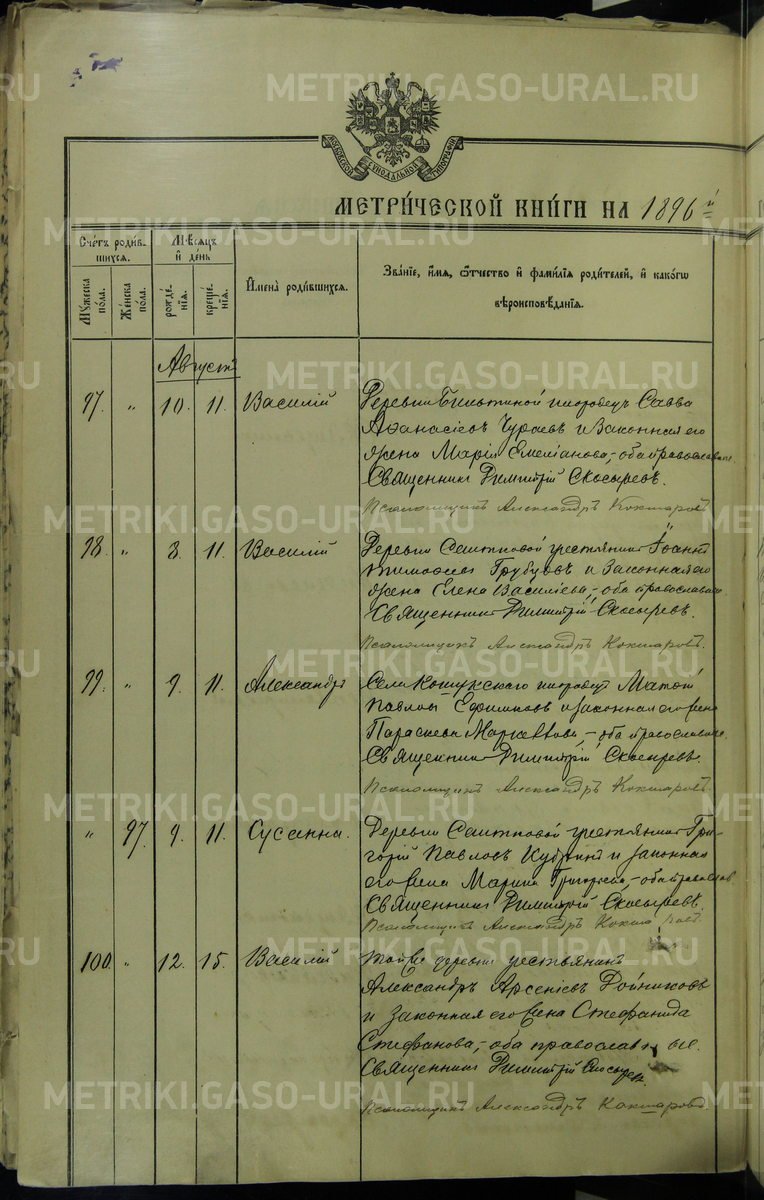 МОСКОВСКОЙ СѴНОДАЛЬНОЙ ТИПОГРАФІИ
МЕТРИ́ЧЕСКОЙ КНИ́ГИ НА 1896й
Сче́тъ роди́в-
шихся.
Му́жеска по́ла.
Же́нска по́ла.
Мѣ́сяцъ
и҆ де́нь
рожде́нїѧ.
креще́нїѧ.
И҆мена̀ роди́вшихся.
Зва́нїе, и҆́мя, ѻ҆́тчество и҆ фами́лїѧ роди́телей, и҆ како́гѡ
вѣроисповѣ́данїѧ.
Августъ
97. " 10. 11. Василій
Деревни Савва
Аѳанасіевъ Чураевъ и законная его
жена Марія Емеліанова,- оба православные.
Священникъ Димитрій Скосыревъ.
Псаломщикъ Александръ Кокшаровъ.
98. " 8. 11. Василій
Деревни крестьянинъ Іоаннъ
Тимоѳеевъ Трубцовъ и законная его
жена Елена Василіева,- оба православные
Священникъ Димитрій Скосыревъ.
Псаломщикъ Александръ Кокшаровъ.
99. " 9. 11. Александръ
Села Кошукскаго Матѳій
Павловъ Ефимковъ и законная его жена
Параскева,- оба православные.
Священникъ Димитрій Скосыревъ.
Псаломщикъ Александръ Кокшаровъ.
" 97. 9. 11. Сусанна.
Деревни крестьянинъ Гри-
горій Павловъ и законная
его жена Марина Григорьева,- оба правосл
Священникъ Димитрій Скосыревъ
Псаломщикъ Александръ Кокшаровъ.
100. " 12. 15. Василій
Той же деревни крестьянинъ
Александръ Арсеніевъ Дойниковъ
и законная его жена Стефанида
Стефанова,- оба православные.
Священникъ Димитрій Скосыревъ.
Псаломщикъ Александръ Кокшаровъ.
METRIKI.GASO-URAL.RU